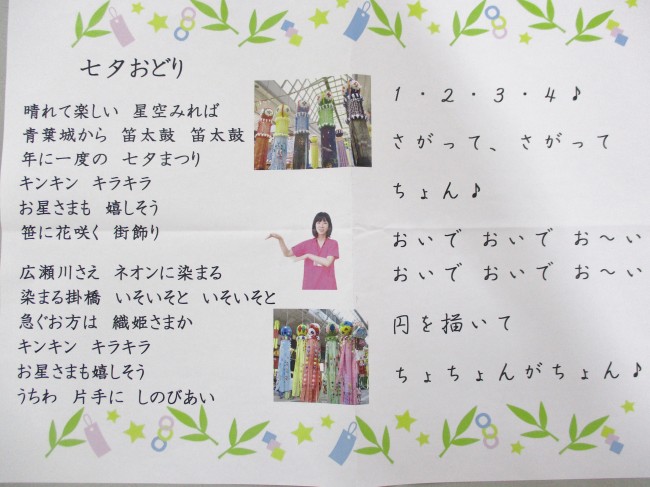 七夕おどり
晴れて楽しい 星空みれば
青葉城から 笛太鼓 笛太鼓
年に一度の 七夕まつり
キンキン キラキラ
お星さまも 嬉しそう
笹に花咲く 街飾り
広瀬川さえ ネオンに染まる
染まる掛橋 いそいそと いそいそと
急ぐお方は 織姫さまか
キンキン キラキラ
お星さまも嬉しそう
うちわ 片手に しのびあい
1・2・3・4♪
さがって、さがって
ちょん♪
おいで おいで お～い
おいで おいで お～い
円を描いて
ちょちょんがちょん♪